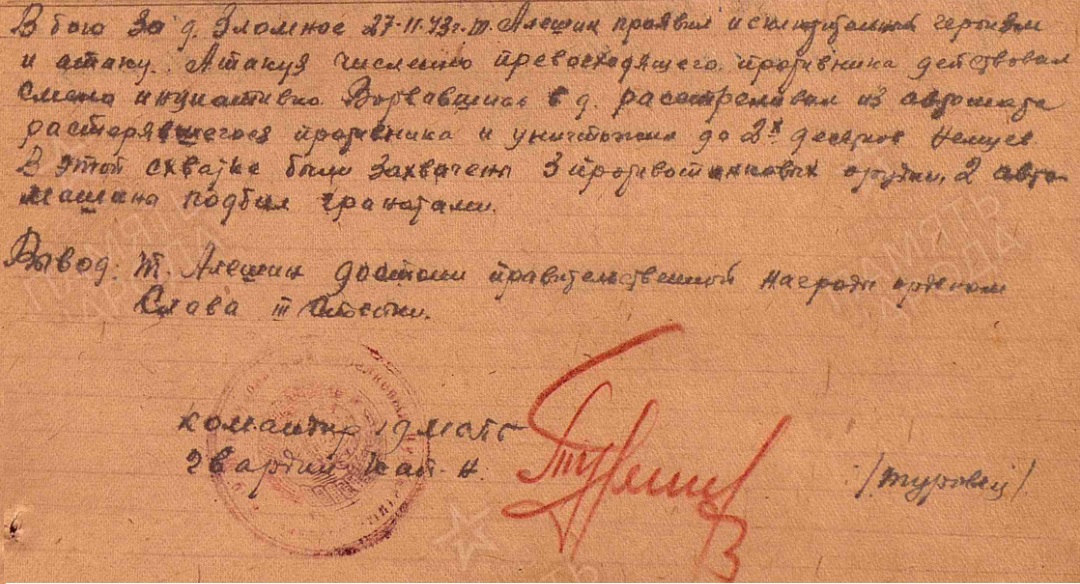 В бою за д. Зломное 27.11.43г. т. Алешин проявил исключительный героизм
и атаку. Атакуя численно превосходящего противника действовал
смело инициативно Ворвавшись в д. расстреливал из автомата
растерявшегося противника и уничтожил до 2х десятков немцев
В этой схватке были захвачены 3 противотанковых орудия, 2 авто-
машины подбил гранатами.
Вывод: т. Алешин достоин правительственной награды орденом
Слава III степени.
командир
гвардии кап-н.
/Туровец/
ПАМЯТЬ НАРОДА